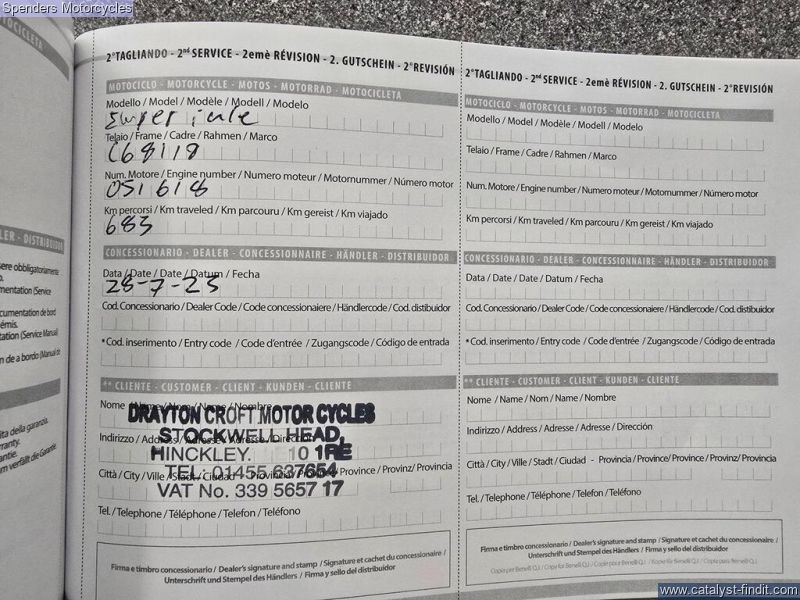 Spenders Motorcycles
OTOCICLETA
LER - DISTRIBUIDOR
sere obbligatoriamente
mentation (Service
cumentation de bord
émis.
tation (Service Manual)
n de a bordo (Manual de
ita della garanzia.
rranty.
antie.
m verfällt die Garantie.
2°TAGLIANDO - 2nd SERVICE - 2emè RÉVISION - 2. GUTSCHEIN - 2°REVISIÓN
MOTOCICLO - MOTORCYCLE - MOTOS - MOTORRAD - MOTOCICLETA
Modello / Model / Modèle / Modell / Modelo
Telaio / Frame / Cadre / Rahmen / Marco
C68118
Num. Motore / Engine number / Numero moteur / Motornummer / Número motor
051618
Km percorsi / Km traveled / Km parcouru / Km gereist / Km viajado
683
CONCESSIONARIO - DEALER - CONCESSIONNAIRE - HÄNDLER - DISTRIBUIDOR
Data / Date / Date / Datum / Fecha
28-7-25
Cod. Concessionario / Dealer Code / Code concessionaiere / Händlercode / Cod. distibuidor
* Cod. inserimento / Entry code / Code d'entrée / Zugangscode / Código de entrada
** CLIENTE - CUSTOMER - CLIENT - KUNDEN - CLIENTE
Nome / Name / Nom / Name / Nombre
DRAYTON CROFT MOTOR CYCLES
STOCKWELL HEAD,
Indirizzo / Address / Adresse / Adresse / Dirección
HINCKLEY. 10 1RE
TEL: 01455 637654
Città / City / Ville / Stadt / Ciudad - Provincia / Province / Province / Provinz / Provincia
VAT No. 339 5657 17
Tel. / Telephone / Téléphone / Telefon / Teléfono
Firma e timbro concessionario / Dealer's signature and stamp / Signature et cachet du concessionaire /
Unterschrift und Stempel des Händlers / Firma y sello del distribuidor
2°TAGLIANDO - 2nd SERVICE - 2emè RÉVISION - 2. GUTSCHEIN - 2°REVISIÓN
MOTOCICLO - MOTORCYCLE - MOTOS - MOTORRAD - MOTOCICLETA
Modello / Model / Modèle / Modell / Modelo
Telaio / Frame / Cadre / Rahmen / Marco
Num. Motore / Engine number / Numero moteur / Motornummer / Número motor
Km percorsi / Km traveled / Km parcouru / Km gereist / Km viajado
CONCESSIONARIO - DEALER - CONCESSIONNAIRE - HÄNDLER - DISTRIBUIDOR
Data / Date / Date / Datum / Fecha
Cod. Concessionario / Dealer Code / Code concessionaiere / Händlercode / Cod. distibuidor
* Cod. inserimento / Entry code / Code d'entrée / Zugangscode / Código de entrada
** CLIENTE - CUSTOMER - CLIENT - KUNDEN - CLIENTE
Nome / Name / Nom / Name / Nombre
Indirizzo / Address / Adresse / Adresse / Dirección
Città / City / Ville / Stadt / Ciudad - Provincia / Province / Province / Provinz / Provincia
Tel. / Telephone / Téléphone / Telefon / Teléfono
Firma e timbro concessionario / Dealer's signature and stamp / Signature et cachet du concessionaire /
Unterschrift und Stempel des Händlers / Firma y sello del distribuidor
Copia per Benelli Q.J. / Copy for Benelli Q.J. / Copie pour Benelli Q.J. / Kopie für Benelli Q.J. / Copia para Benelli Q.J.
www.catalyst-findit.com